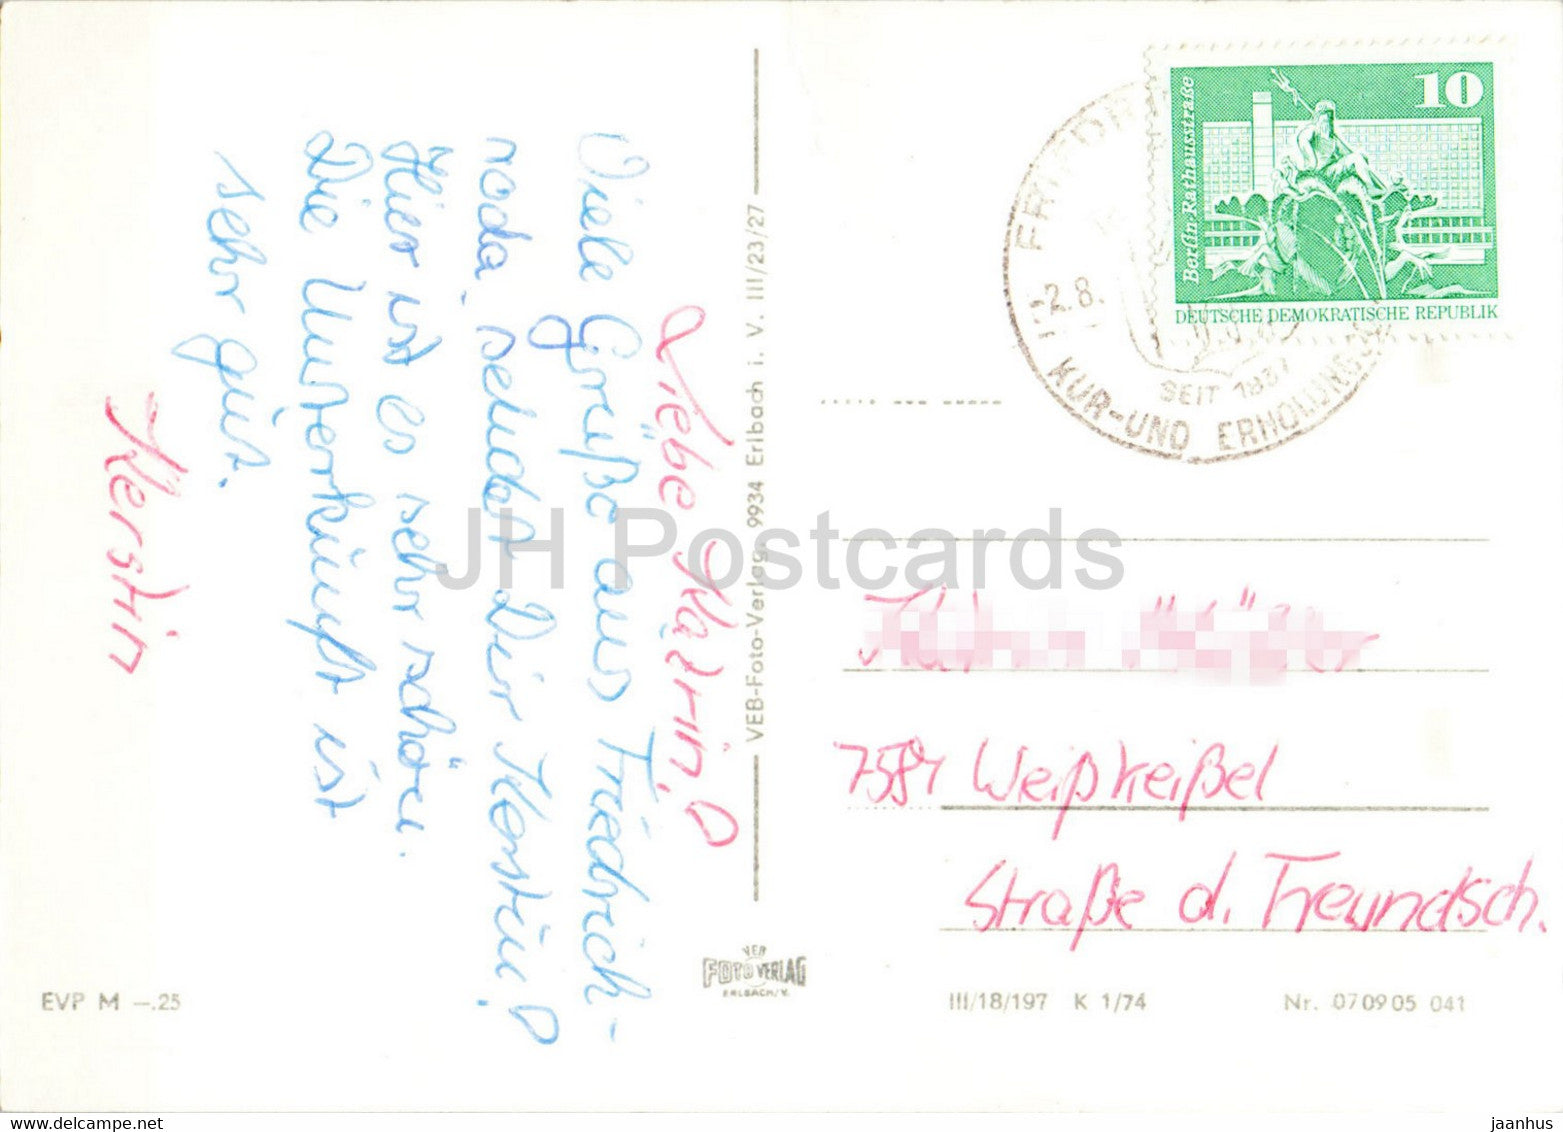 Liebe Katrin!
Viele Grüße aus Friedrich-
roda sendet Dir Kerstin!
Hier ist es sehr schön.
Die Unterkunft ist
sehr gut.
Kerstin
VEB-Foto-Verlag. 9934 Erlbach i. V. III/23/27
10
Berlin · Rathausstraße
DEUTSCHE DEMOKRATISCHE REPUBLIK
FRIEDR
-2.8.
SEIT 1837
KUR-UND ERHOLUNGSO
JH Postcards
7584 Weißkeißel
Straße d. Freundsch.
VEB
FOTO VERLAG
ERLBACH/V.
EVP M —.25
III/18/197 K 1/74
Nr. 070905 041
jaanhus